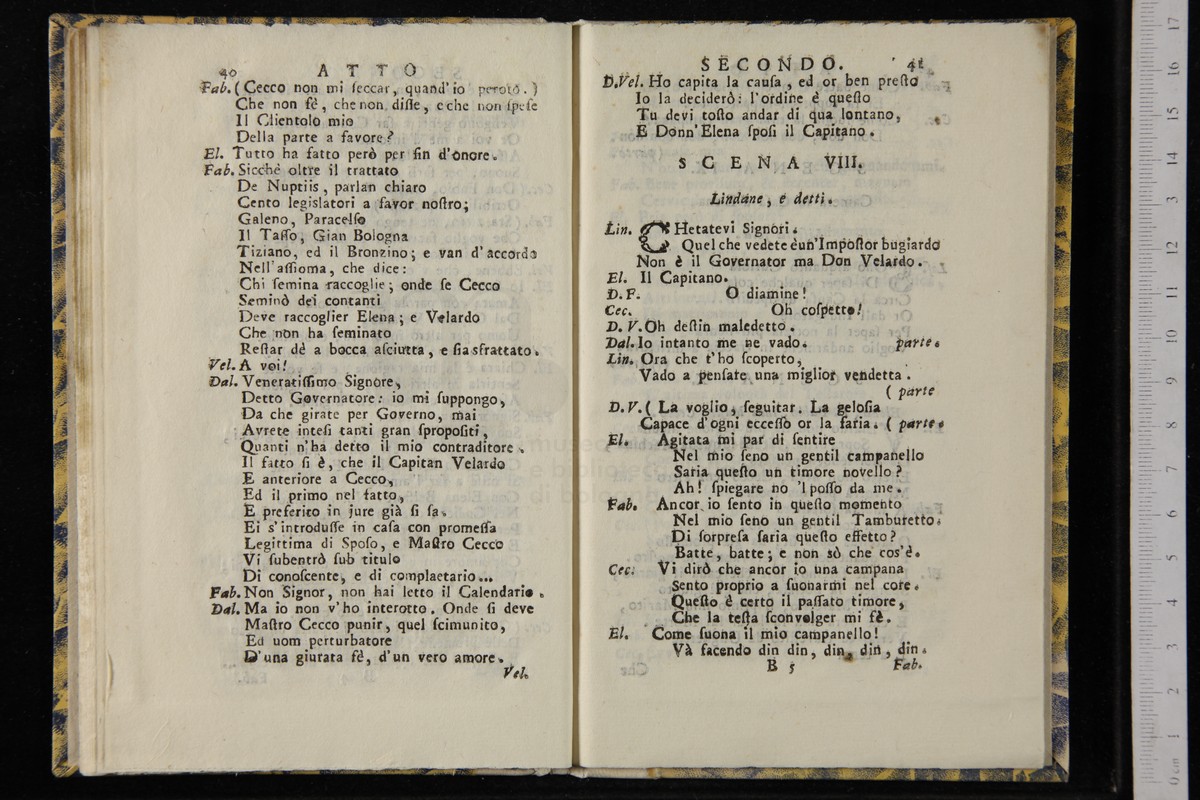 40 ATTO
Fab. ( Cecco non mi ſeccar, quand'io peroro. )
Che non fè, che non diſſe, e che non ſpeſe
Il Clientolo mio
Della parte a favore?
El. Tutto ha fatto però per fin d'onore.
Fab. Sicchè oltre il trattato
De Nuptiis, parlan chiaro
Cento legislatori a favor noſtro;
Galeno, Paracelſo
Il Taſſo, Gian Bologna
Tiziano, ed il Bronzino; e van d'accordo
Nell'aſſioma, che dice:
Chi ſemina raccoglie; onde ſe Cecco
Seminò dei contanti
Deve raccoglier Elena; e Velardo
Che non ha ſeminato
Reſtar dè a bocca aſciutta, e ſia sfrattato.
Vel. A voi!
Dal. Veneratiſſimo Signore,
Detto Governatore: io mi ſuppongo,
Da che girate per Governo, mai
Avrete inteſi tanti gran ſpropoſiti,
Quanti n'ha detto il mio contraditore.
Il fatto ſi è, che il Capitan Velardo
E anteriore a Cecco,
Ed il primo nel fatto,
E preferito in jure già ſi ſa.
Ei s'introduſſe in caſa con promeſſa
Legittima di Spoſo, e Maſtro Cecco
Vi ſubentrò ſub titulo
Di conoſcente, e di complaetario...
Fab. Non Signor, non hai letto il Calendario.
Dal. Ma io non v'ho interotto. Onde ſi deve
Maſtro Cecco punir, quel ſcimunito,
Ed uom perturbatore
D'una giurata fè, d'un vero amore.
Vel.
SECONDO. 41
D.Vel. Ho capita la cauſa, ed or ben preſto
Io la deciderò: l'ordine è queſto
Tu devi toſto andar di qua lontano,
E Donn'Elena ſpoſi il Capitano.
SCENA VIII.
Lindane, e detti.
Lin. CHetatevi Signori.
Quel che vedete è un'Impoſtor bugiardo
Non è il Governator ma Don Velardo.
El. Il Capitano.
D. F. O diamine!
Cec. Oh coſpetto!
D. V. Oh deſtin maledetto.
Dal. Io intanto me ne vado. parte.
Lin. Ora che t'ho ſcoperto,
Vado a penſare una miglior vendetta.
( parte
D. V. ( La voglio, ſeguitar. La geloſia
Capace d'ogni ecceſſo or la faria. ( parte.
El. Agitata mi par di ſentire
Nel mio ſeno un gentil campanello
Saria queſto un timore novello?
Ah! ſpiegare no 'l poſſo da me.
Fab. Ancor io ſento in queſto momento
Nel mio ſeno un gentil Tamburetto.
Di ſorpreſa ſaria queſto effetto?
Batte, batte; e non sò che cos'è.
Cec. Vi dirò che ancor io una campana
Sento proprio a ſuonarmi nel core.
Queſto è certo il paſſato timore,
Che la teſta ſconvolger mi fè.
El. Come ſuona il mio campanello!
Và facendo din din, din, din, din.
B 5 Fab.